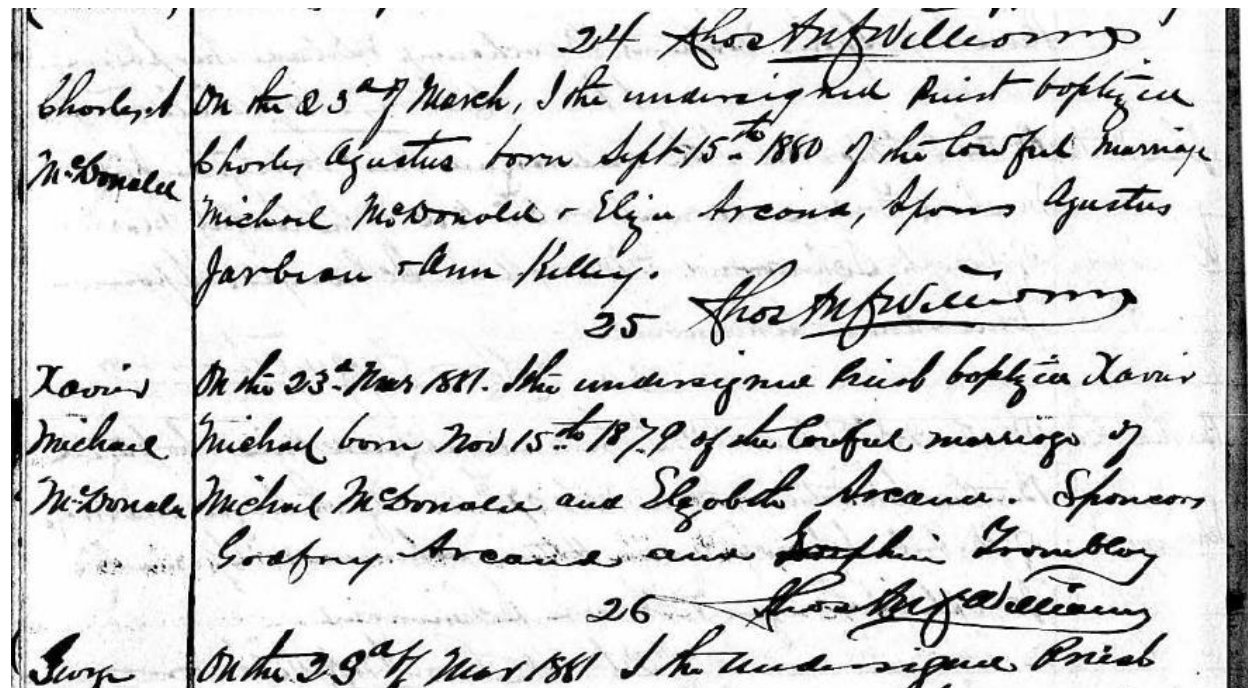 24 Thos McWilliams
Charles A On the 23d of March, I the undersigned Priest baptized
McDonald Charles Agustus born Sept 15th 1880 of the lawful marriage
Michael McDonald & Eliza Arcand, Spons Agustus
Jarbeau & Ann Kelley.
25 Thos McWilliams
Xavier On the 23d Mar 1881. I the undersigned Priest baptized Xavier
Michael Michael born Nov 15th 1879 of the lawful marriage of
McDonald Michael McDonald and Elizabeth Arcand. Sponsors
Godfrey Arcand and Trombley
26 Thos McWilliams
George On the 23d of Mar 1881 I the undersigned Priest